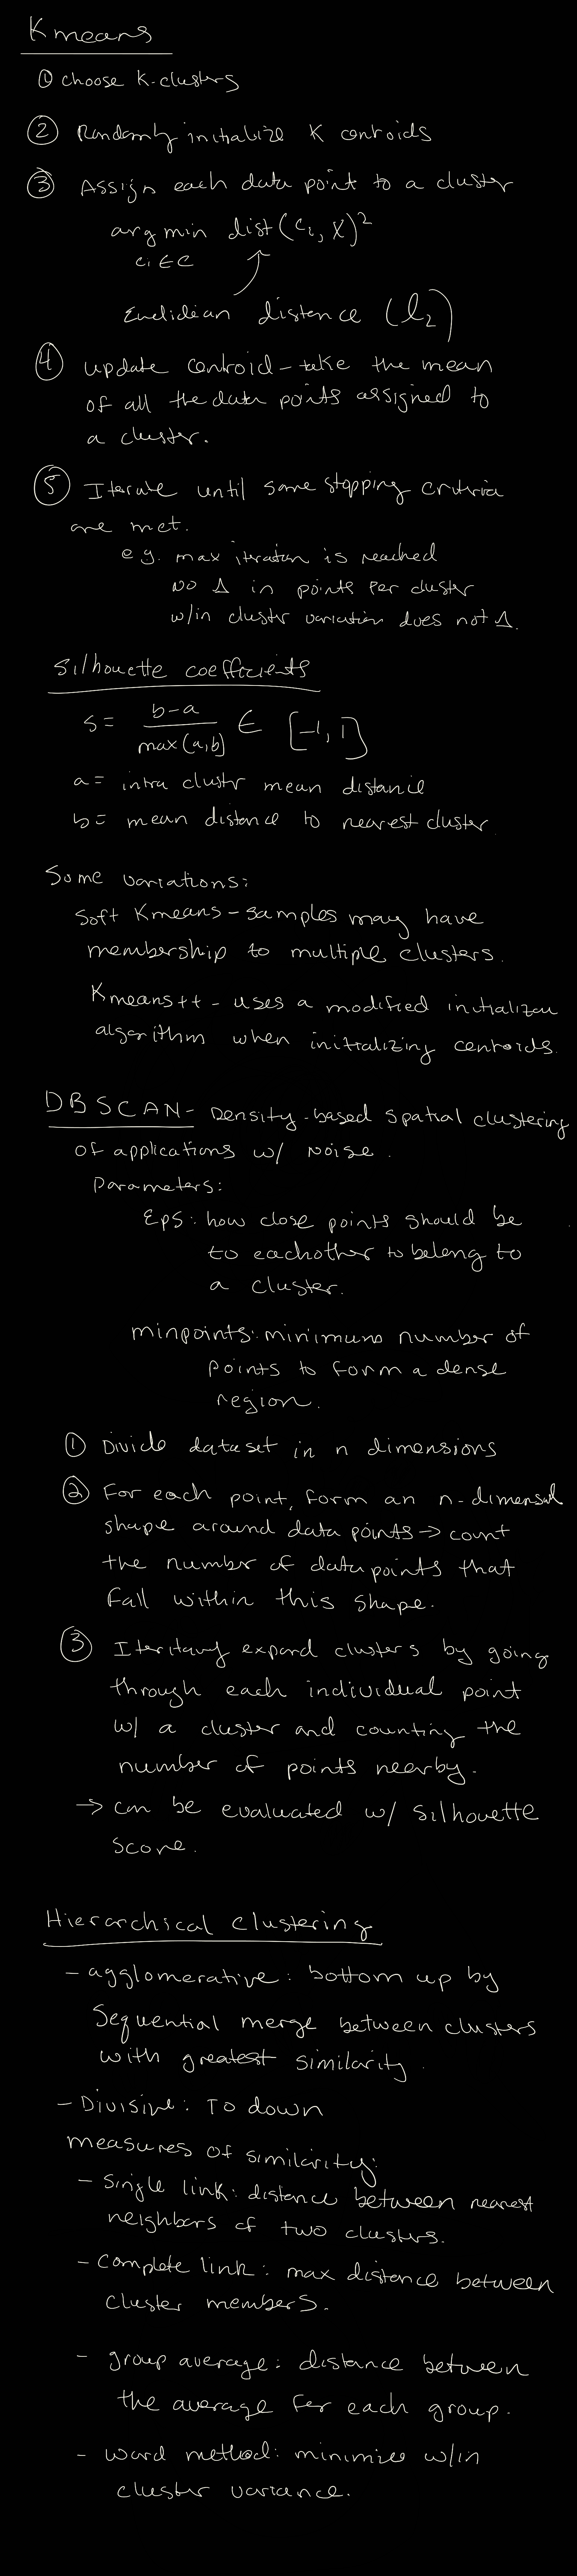 Kmeans
① choose K-clusters
② Randomly initialize K centroids
③ Assign each data point to a cluster
arg min dist(cᵢ, x)²
cᵢ ∈ C
Euclidian distance (l₂)
④ update centroid - take the mean
of all the data points assigned to
a cluster.
⑤ Iterate until some stopping criteria
are met.
e.g. max iteration is reached
NO Δ in points per cluster
w/in cluster variation does not Δ.
Silhouette coefficients
s = b-a / max(a,b) ∈ [-1, 1]
a = intra cluster mean distance
b = mean distance to nearest cluster.
Some variations:
Soft Kmeans - samples may have
membership to multiple clusters.
Kmeans++ - uses a modified
algorithm when initializing centroids.
DBSCAN - Density-based spatial clustering
of applications w/ Noise.
Parameters:
Eps: how close points should be
to eachother to belong to
a cluster.
minpoints: minimum number of
points to form a dense
region.
① Divide dataset in n dimensions
② For each point, form an n-dimensional
shape around data points → count
the number of data points that
fall within this shape.
③ expand clusters by going
through each individual point
w/ a cluster and counting the
number of points nearby.
→ can be evaluated w/ silhouette
score.
Hierarchical clustering
- agglomerative: bottom up by
sequential merge between clusters
with greatest similarity.
- Divisive: To down
measures of similarity:
- Single link: distance between nearest
neighbors of two clusters.
- complete link: max distance between
cluster members.
- group average: distance between
the average for each group.
- ward method: minimize w/in
cluster variance.